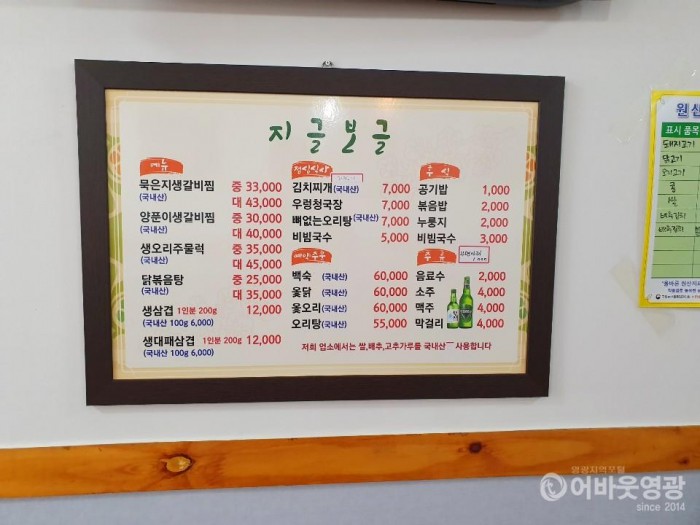 지글보글
메뉴
묵은지생갈비찜 중 33,000
(국내산) 대 43,000
양푼이생갈비찜 중 30,000
(국내산) 대 40,000
생오리주물럭 중 35,000
(국내산) 대 45,000
닭볶음탕 중 25,000
(국내산) 대 35,000
생삼겹 1인분 200g 12,000
(국내산 100g 6,000)
생대패삼겹 1인분 200g 12,000
(국내산 100g 6,000)
점심식사
김치찌개(국내산) 7,000
우렁청국장 7,000
뼈없는오리탕(국내산) 7,000
비빔국수 5,000
예약주문
백숙 (국내산) 60,000
옻닭 (국내산) 60,000
옻오리(국내산) 60,000
오리탕(국내산) 55,000
후식
공기밥 1,000
볶음밥 2,000
누룽지 2,000
비빔국수 3,000
주류
음료수 2,000
소주 4,000
맥주 4,000
막걸리 4,000
저희 업소에서는 쌀,배추,고추가루를 국내산 사용합니다
원산
표시 품목
돼지고기
닭고기
오리고기
쌀
배추김치
영광지역포털
어바웃영광
since 2014